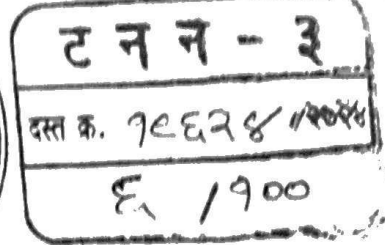 ट न न - ३
दस्त क्र. १९६२४ /२०२४
६ /१००